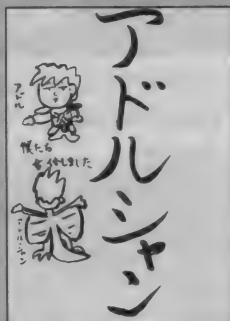 アドルシャン
アドル
僕たち
合体しました
アドル・シャン